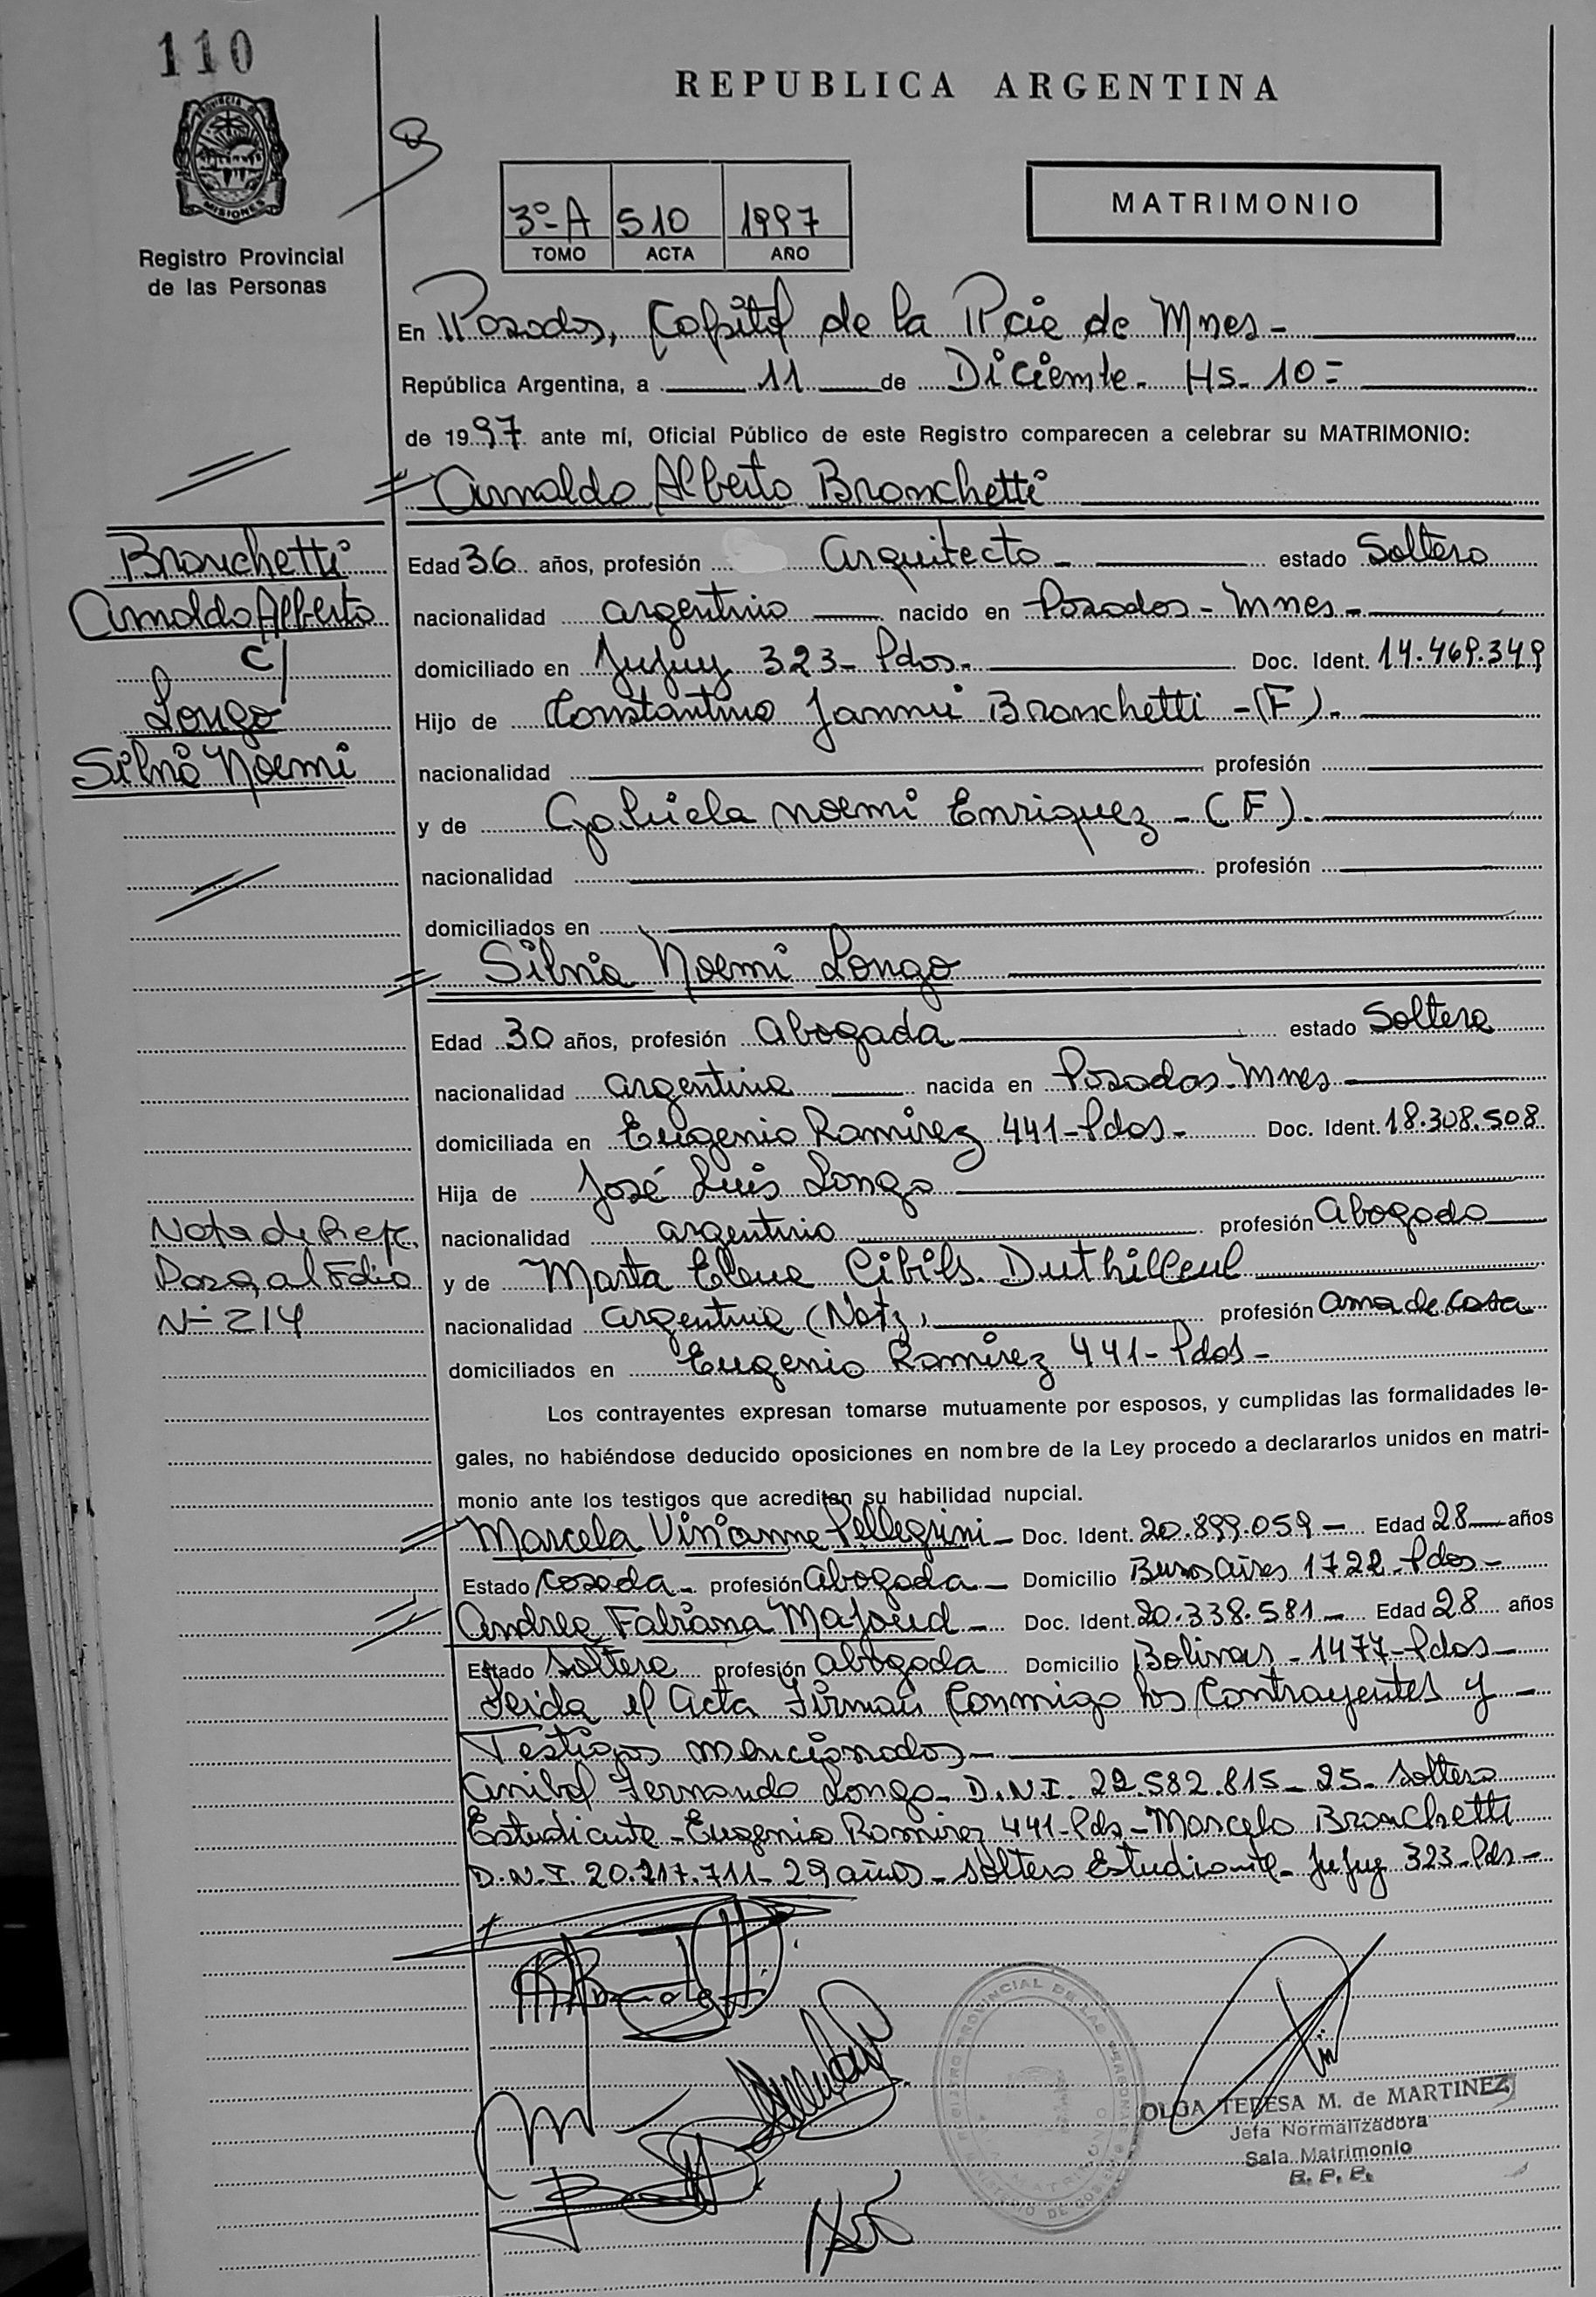 110
REPUBLICA ARGENTINA
PROVINCIA DE
MISIONES
Registro Provincial
de las Personas
MATRIMONIO
3º-A 510 1997
TOMO ACTA AÑO
En Posadas, Capital de la Pcia de Mnes-
República Argentina, a 11 de Diciembre- Hs- 10=
de 1997 ante mí, Oficial Público de este Registro comparecen a celebrar su MATRIMONIO:
Arnaldo Alberto Bronchetti
Bronchetti
Arnaldo Alberto
c/
Longo
Silvia Noemi
Edad 36 años, profesión Arquitecto - estado Soltero
nacionalidad argentino nacido en Posadas - Mnes -
domiciliado en Jujuy 323- Pdas- Doc. Ident. 14.469.349
Hijo de Constantino Jannu Bronchetti -(F)-
nacionalidad profesión
y de Gabriela Noemi Enriquez - (F)-
nacionalidad profesión
domiciliados en
Silvia Noemi Longo
Edad 30 años, profesión Abogada estado Soltera
nacionalidad argentina nacida en Posadas-Mnes
domiciliada en Eugenio Ramirez 441-Pdas- Doc. Ident. 18.308.508
Hija de José Luis Longo
nacionalidad argentino profesión Abogado
y de Marta Elena Cibils Duthilleul
nacionalidad argentina (Natz) profesión ama de casa
domiciliados en Eugenio Ramirez 441-Pdas-
Nota de Refc.
Pasa al Folio
Nº 214
Los contrayentes expresan tomarse mutuamente por esposos, y cumplidas las formalidades le-
gales, no habiéndose deducido oposiciones en nombre de la Ley procedo a declararlos unidos en matri-
monio ante los testigos que acrediten su habilidad nupcial.
Marcela Vivianne Pellegrini- Doc. Ident. 20.899.059 - Edad 28 años
Estado casada - profesión Abogada - Domicilio Buenos Aires 1722-Pdas-
Andrea Fabiana Masoud - Doc. Ident. 20.338.581 - Edad 28 años
Estado soltera profesión abogada Domicilio Bolivar - 1477-Pdas-
Leida el Acta Firman Conmigo los Contrayentes y -
Testigos mencionados -
Anibal Fernando Longo- D.N.I. 22.582.815- 25- soltero
Estudiante - Eugenio Ramirez 441-Pds-Marcelo Bronchetti
D.N.I. 20.217.711- 29 años - soltero Estudiante - Jujuy 323-Pds-
REGISTRO PROVINCIAL DE LAS PERSONAS
MINISTERIO DE GOBIERNO
MATRIMONIO
OLGA TERESA M. de MARTINEZ
Jefa Normalizadora
Sala Matrimonio
R. P. P.